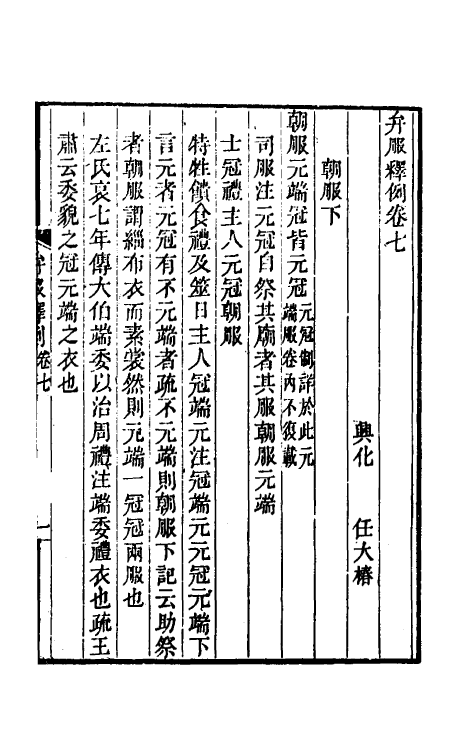 弁服釋例卷七
興化 任大椿
朝服下
朝服元端冠皆元冠元冠制詳於此元端服卷內不復載
司服注元冠自祭其廟者其服朝服元端
士冠禮主人元冠朝服
特牲饋食禮及筮日主人冠端元注冠端元元冠元端下
言元者元冠有不元端者疏不元端則朝服下記云助祭
者朝服謂緇布衣而素裳然則元端一冠冠兩服也
左氏哀七年傳大伯端委以治周禮注端委禮衣也疏王
肅云委貌之冠元端之衣也
弁服釋例卷七 一